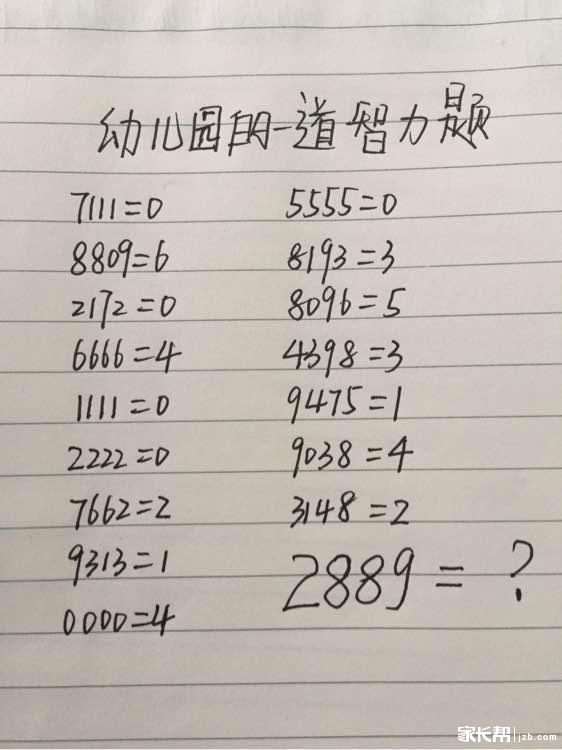 幼儿园的一道智力题
7111=0
8809=6
2172=0
6666=4
1111=0
2222=0
7662=2
9313=1
0000=4
5555=0
8193=3
8096=5
4398=3
9475=1
9038=4
3148=2
2889=?
家长帮 jzb.com